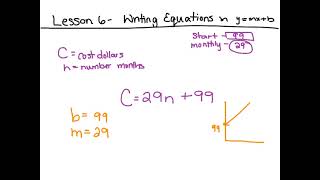 Lesson 6- Writing Equations in y=mx+b
Start - 99
monthly - 29
C = cost dollars
n = number months
C=29n +99
b = 99
m = 29
99